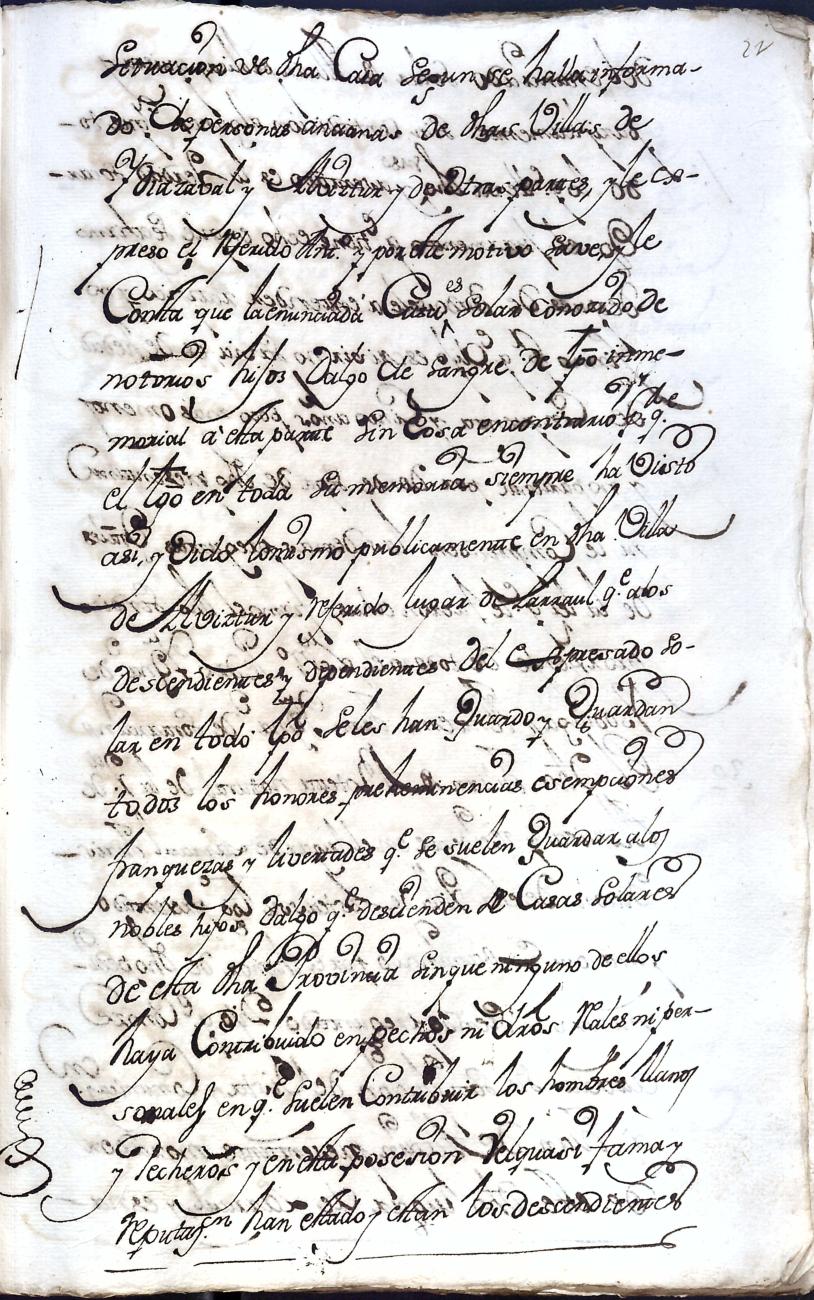 22
situacion de dha Casa segun se halla informa-
do de personas ancianas de dhas Villas de
Ydiazaval y Alvistur y de otras partes, y le ex-
preso el referido Ant.º y por este motivo save, y le
Consta que la enunciada Casa es solar conozido de
notorios hijos dalgo de sangre de tpo inme-
morial a esta parte sin cosa encontrario por q.e
el tpo en toda su memoria siempre ha visto
asi, y oido lo mismo publicamente en dha Villa
de Alvistur y referido lugar de Larraul q.e alos
descendientes y dependientes del expresado so-
lar en todo tpo seles han Guardo y Guardan
todos los honores preheminencias esempciones
franquezas y livertades q.e se suelen Guardar alos
nobles hijos dalgo q.e descienden de Casas solares
de esta dha Provincia sinque ninguno de ellos
haya Contribuido en pechos ni dros Rales ni per-
sonales en q.e suelen Contribuir los hombres llanos
y Pecheros y en esta posesion velquasi fama y
reputaz.n han estado y estan los descendientes